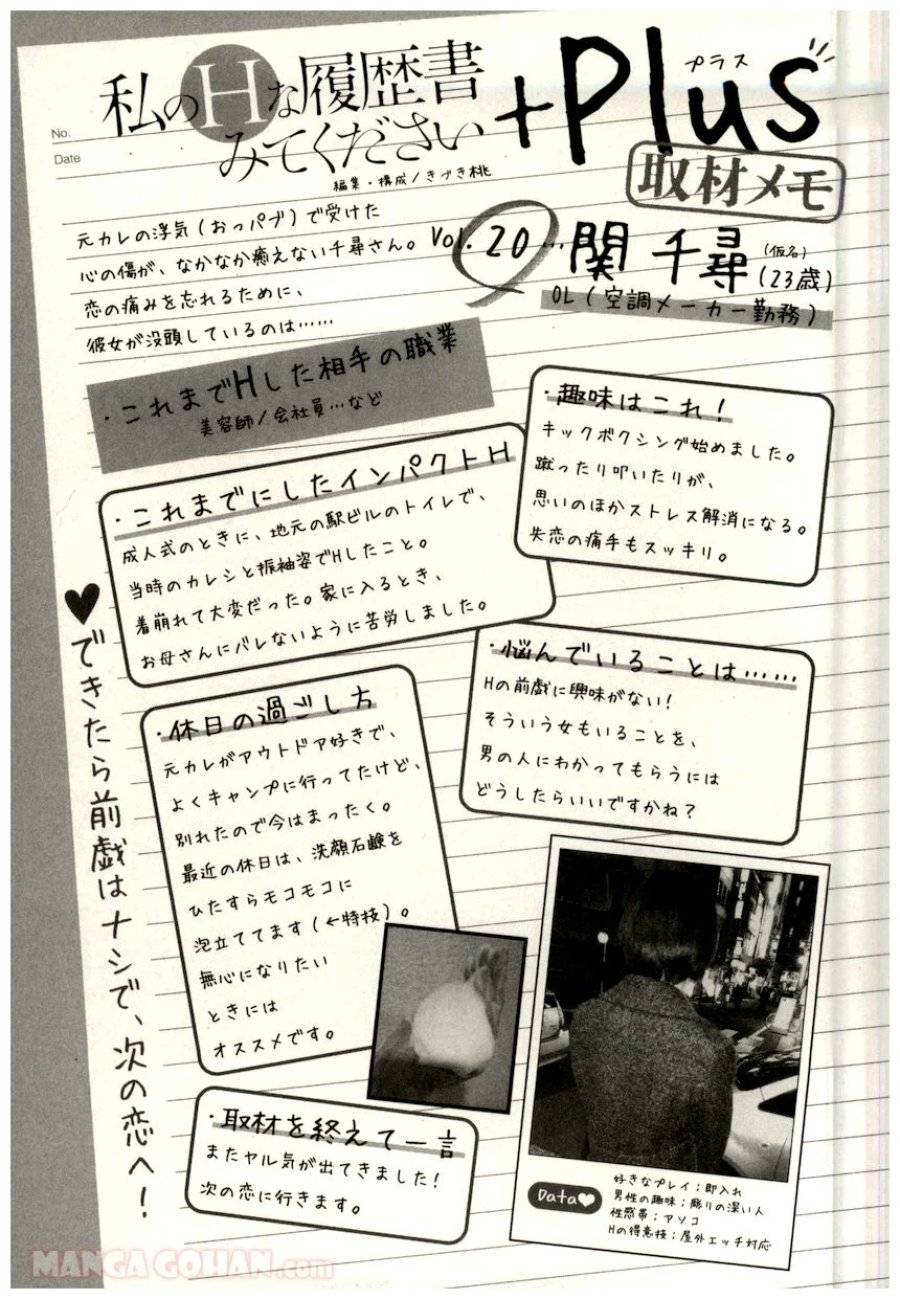 No.
Date
私のHな履歴書
みてください
+Plus
プラス
編集・構成/きづき桃
取材メモ
元カレの浮気(おっパブ)で受けた
心の傷が、なかなか癒えない千尋さん。
恋の痛みを忘れるために、
彼女が没頭しているのは……
Vol.20…
関 千尋
(仮名)
(23歳)
OL(空調メーカー勤務)
・これまでHした相手の職業
美容師/会社員…など
・趣味はこれ!
キックボクシング始めました。
蹴ったり叩いたりが、
思いのほかストレス解消になる。
失恋の痛手もスッキリ。
・これまでにしたインパクトH
成人式のときに、地元の駅ビルのトイレで、
当時のカレシと振袖姿でHしたこと。
着崩れて大変だった。家に入るとき、
お母さんにバレないように苦労しました。
・悩んでいることは……
Hの前戯に興味がない!
そういう女もいることを、
男の人にわかってもらうには
どうしたらいいですかね?
・休日の過ごし方
元カレがアウトドア好きで、
よくキャンプに行ってたけど、
別れたので今はまったく。
最近の休日は、洗顔石鹸を
ひたすらモコモコに
泡立ててます(←特技)。
無心になりたい
ときには
オススメです。
♥できたら前戯はナシで、次の恋へ!
・取材を終えて一言
またヤル気が出てきました!
次の恋に行きます。
Data♥
好きなプレイ:即入れ
男性の趣味:彫りの深い人
性感帯:アソコ
Hの得意技:屋外エッチ対応
MANGA GOHAN.com